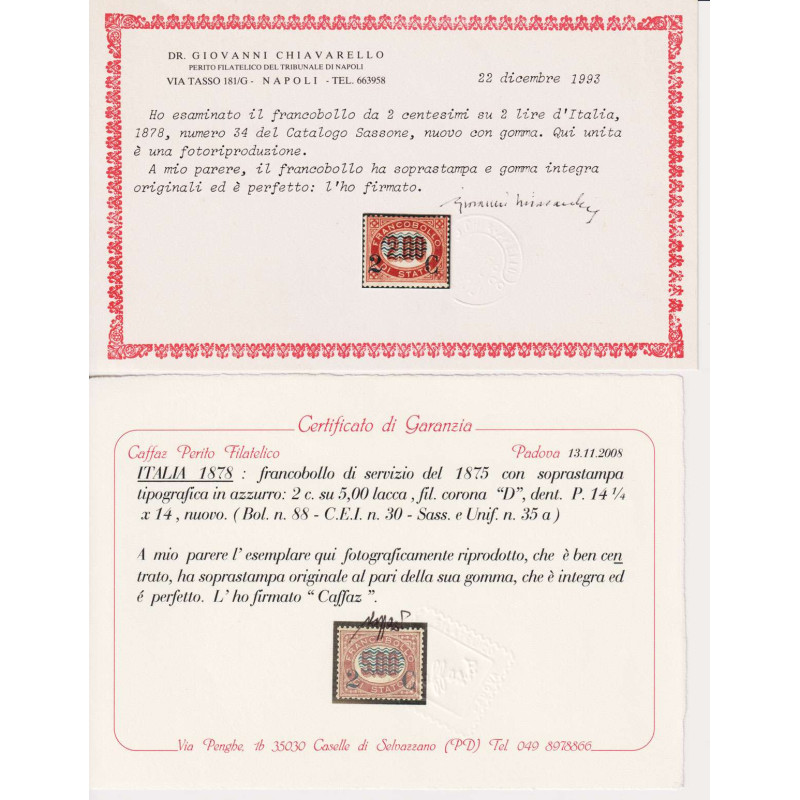 DR. GIOVANNI CHIAVARELLO
PERITO FILATELICO DEL TRIBUNALE DI NAPOLI
VIA TASSO 181/G - NAPOLI - TEL. 663958
22 dicembre 1993
Ho esaminato il francobollo da 2 centesimi su 2 lire d'Italia,
1878, numero 34 del Catalogo Sassone, nuovo con gomma. Qui unita
è una fotoriproduzione.
A mio parere, il francobollo ha soprastampa e gomma integra
originali ed è perfetto: l'ho firmato.
FRANCOBOLLO
2,00
2 C.
DI STATO
Certificato di Garanzia
Caffaz Perito Filatelico
Padova 13.11.2008
ITALIA 1878 : francobollo di servizio del 1875 con soprastampa
tipografica in azzurro: 2 c. su 5,00 lacca , fil. corona "D", dent. P. 14 ¼
x 14 , nuovo. ( Bol. n. 88 - C.E.I. n. 30 - Sass. e Unif. n. 35 a )
A mio parere l' esemplare qui fotograficamente riprodotto, che è ben cen
trato, ha soprastampa originale al pari della sua gomma, che è integra ed
é perfetto. L' ho firmato " Caffaz ".
FRANCOBOLLO
5,00
2 C.
DI STATO
Via Penghe, 1b 35030 Caselle di Selvazzano (PD) Tel 049 8978866